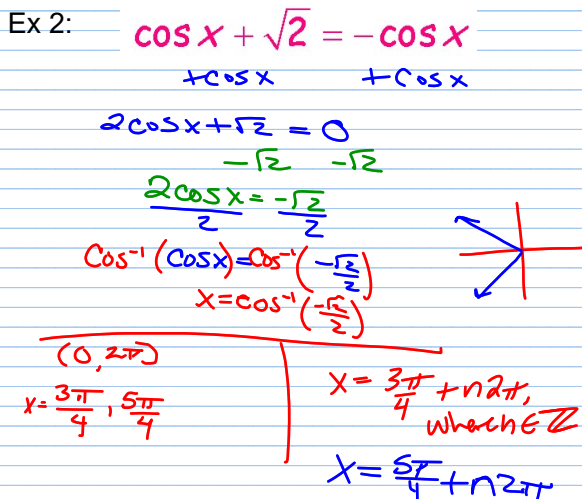 Ex 2:
cos x + √2 = -cos x
+cos x +cos x
2cosx+√2 = 0
-√2 -√2
2cosx = -√2
2 2
Cos⁻¹(cosx)=Cos⁻¹(-√2/2)
x=cos⁻¹(-√2/2)
(0, 2π)
x= 3π/4, 5π/4
x= 3π/4 + n2π,
where n∈ℤ
x= 5π/4 + n2π